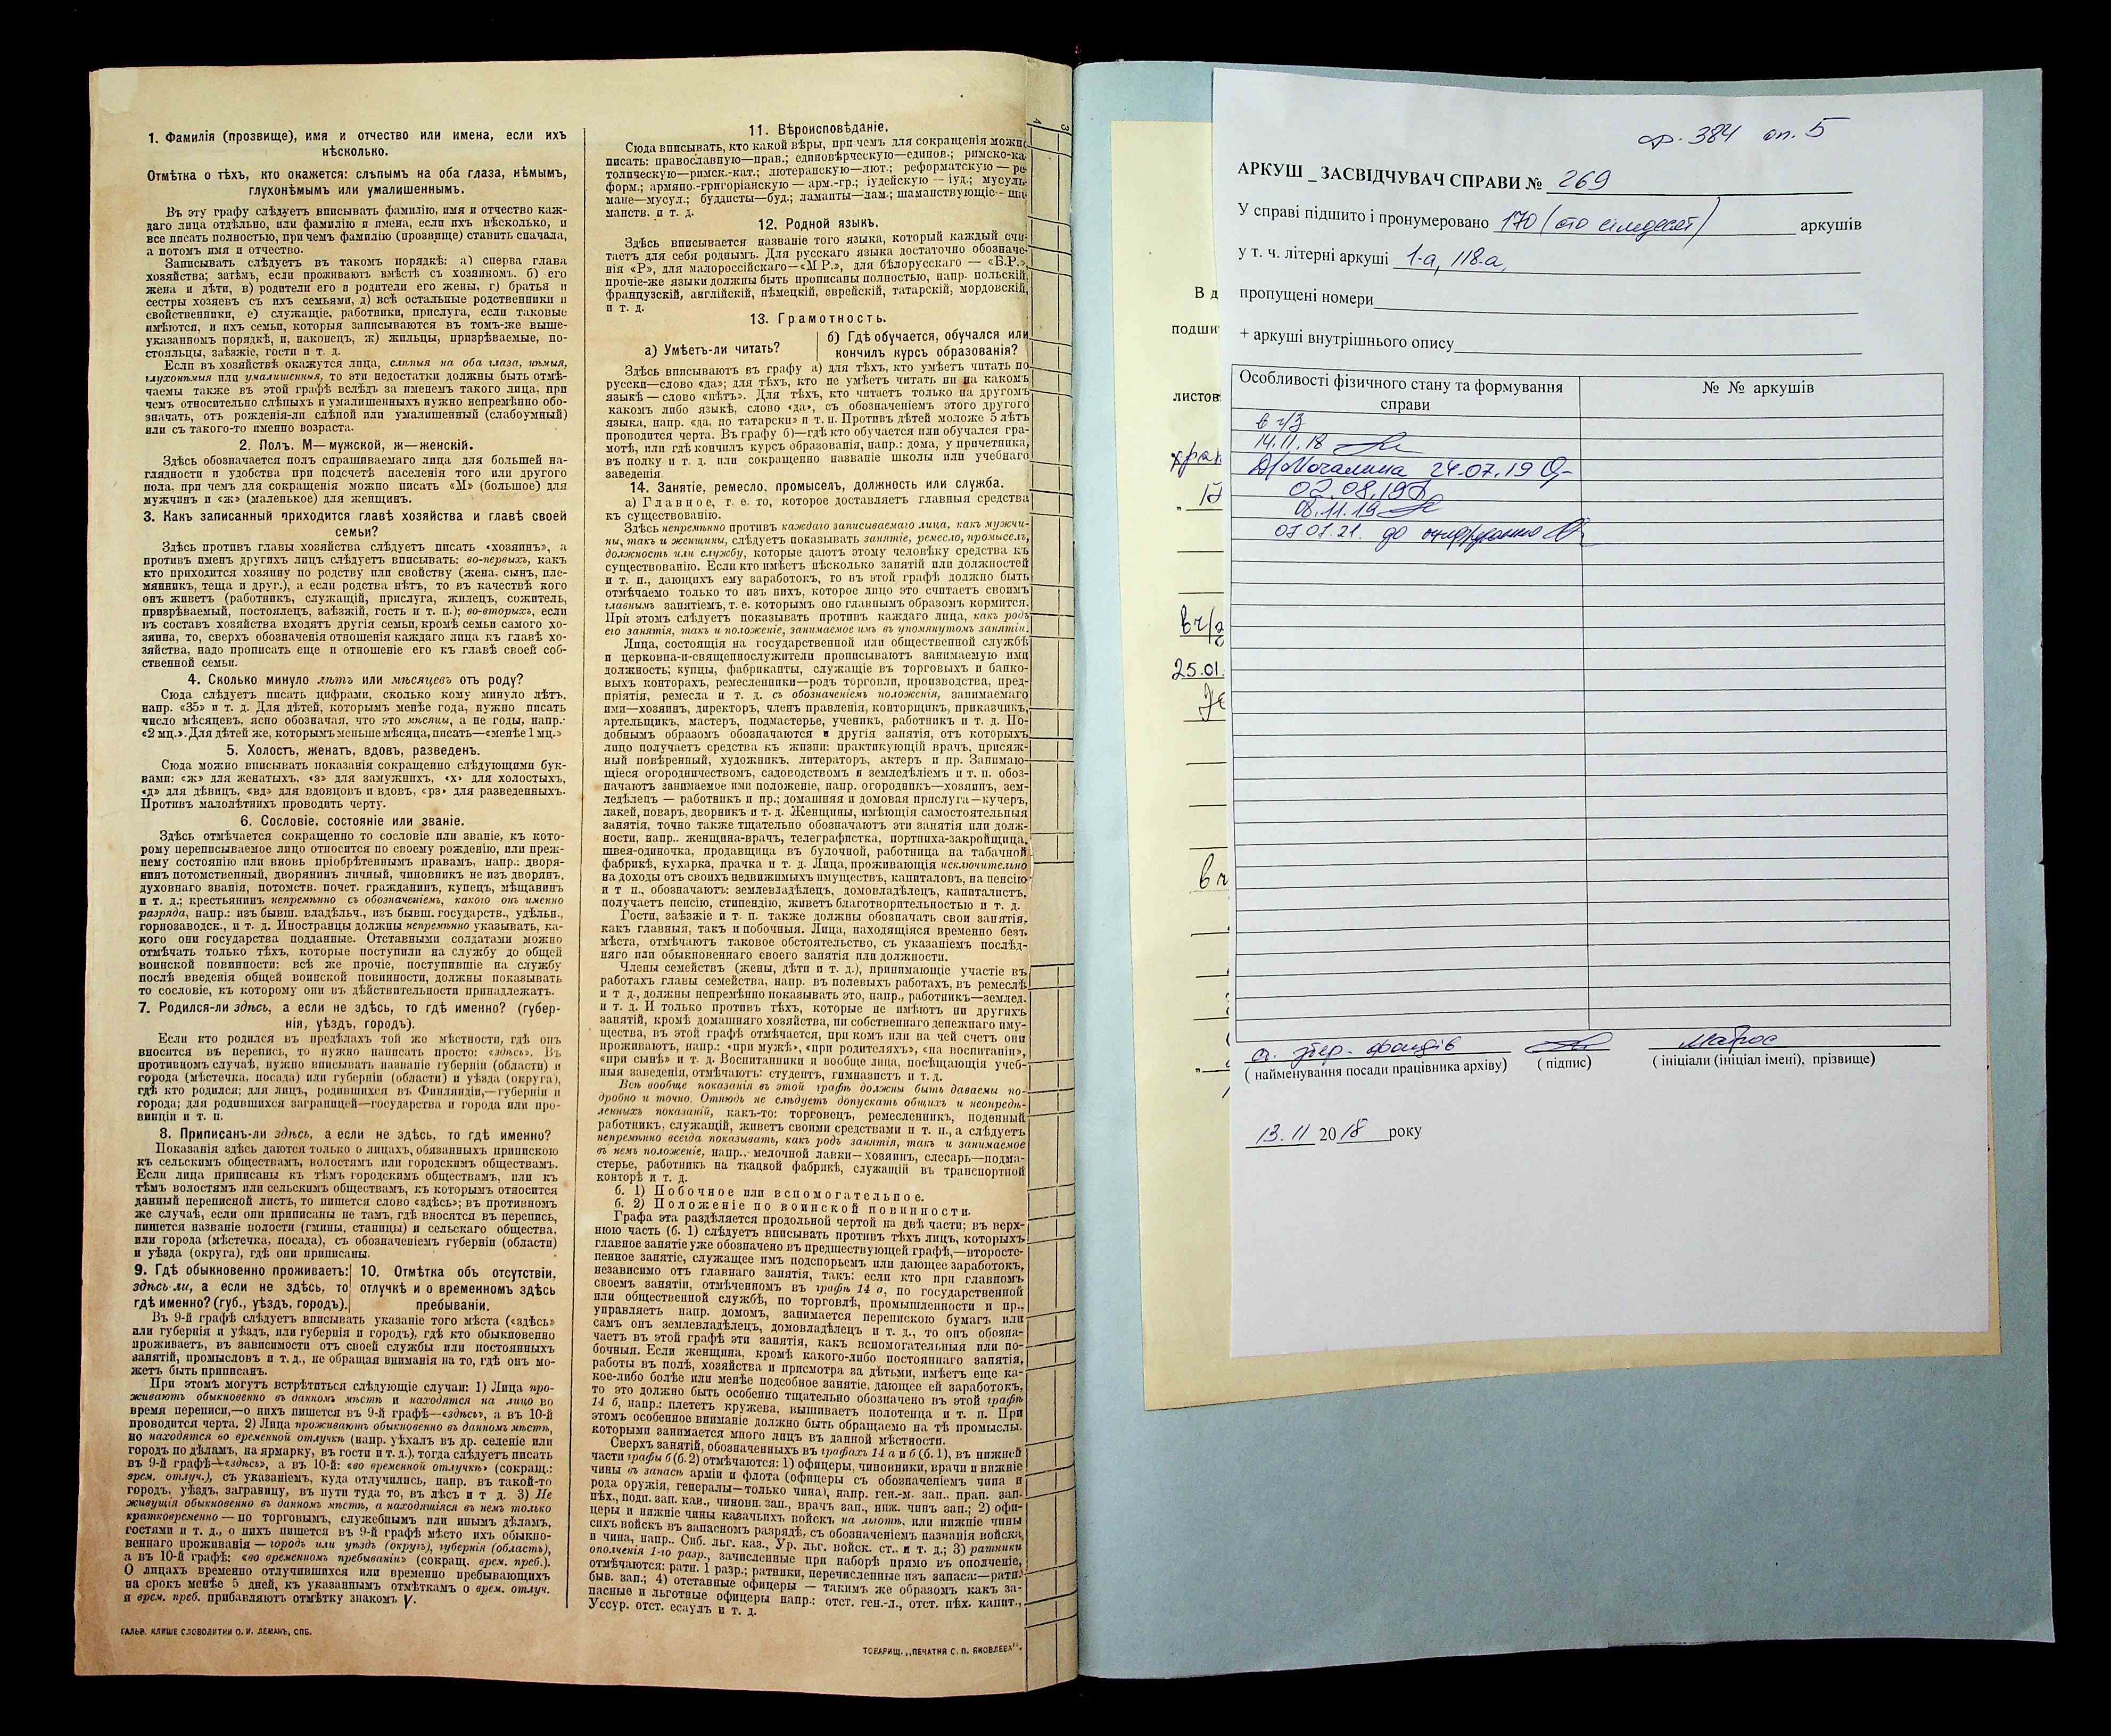 1. Фамилія (прозвище), имя и отчество или имена, если ихъ
нѣсколько.
Отмѣтка о тѣхъ, кто окажется: слѣпымъ на оба глаза, нѣмымъ,
глухонѣмымъ или умалишеннымъ.
Въ эту графу слѣдуетъ вписывать фамилію, имя и отчество каж-
даго лица отдѣльно, или фамилію и имена, если ихъ нѣсколько, и
все писать полностью, при чемъ фамилію (прозвище) ставить сначала,
а потомъ имя и отчество.
Записывать слѣдуетъ въ такомъ порядкѣ: а) сперва глава
хозяйства; затѣмъ, если проживаютъ вмѣстѣ съ хозяиномъ. б) его
жена и дѣти, в) родители его и родители его жены, г) братья и
сестры хозяевъ съ ихъ семьями, д) всѣ остальные родственники и
свойственники, е) служащіе, работники, прислуга, если таковые
имѣются, и ихъ семьи, которыя записываются въ томъ-же выше-
указанномъ порядкѣ, и, наконецъ, ж) жильцы, призрѣваемые, по-
стояльцы, заѣзжіе, гости и т. д.
Если въ хозяйствѣ окажутся лица, слѣпыя на оба глаза, нѣмыя,
глухонѣмыя или умалишенныя, то эти недостатки должны быть отмѣ-
чаемы также въ этой графѣ вслѣдъ за именемъ такого лица, при
чемъ относительно слѣпыхъ и умалишенныхъ нужно непремѣнно обо-
значать, отъ рожденія-ли слѣпой или умалишенный (слабоумный)
или съ такого-то именно возраста.
2. Полъ. М—мужской, ж—женскій.
Здѣсь обозначается полъ спрашиваемаго лица для большей на-
глядности и удобства при подсчетѣ населенія того или другого
пола, при чемъ для сокращенія можно писать «М» (большое) для
мужчинъ и «ж» (маленькое) для женщинъ.
3. Какъ записанный приходится главѣ хозяйства и главѣ своей
семьи?
Здѣсь противъ главы хозяйства слѣдуетъ писать «хозяинъ», а
противъ именъ другихъ лицъ слѣдуетъ вписывать: во-первыхъ, какъ
кто приходится хозяину по родству или свойству (жена, сынъ, пле-
мянникъ, теща и друг.), а если родства нѣтъ, то въ качествѣ кого
онъ живетъ (работникъ, служащій, прислуга, жилецъ, сожитель,
призрѣваемый, постоялецъ, заѣзжій, гость и т. п.); во-вторыхъ, если
въ составъ хозяйства входятъ другія семьи, кромѣ семьи самого хо-
зяина, то, сверхъ обозначенія отношенія каждаго лица къ главѣ хо-
зяйства, надо прописать еще и отношеніе его къ главѣ своей соб-
ственной семьи.
4. Сколько минуло лѣтъ или мѣсяцевъ отъ роду?
Сюда слѣдуетъ писать цифрами, сколько кому минуло лѣтъ,
напр. «35» и т. д. Для дѣтей, которымъ менѣе года, нужно писать
число мѣсяцевъ, ясно обозначая, что это мѣсяцы, а не годы, напр.:
«2 мц.». Для дѣтей же, которымъ меньше мѣсяца, писать—«менѣе 1 мц.»
5. Холостъ, женатъ, вдовъ, разведенъ.
Сюда можно вписывать показанія сокращенно слѣдующими бук-
вами: «ж» для женатыхъ, «з» для замужнихъ, «х» для холостыхъ,
«д» для дѣвицъ, «вд» для вдовцовъ и вдовъ, «рз» для разведенныхъ.
Противъ малолѣтнихъ проводить черту.
6. Сословіе, состояніе или званіе.
Здѣсь отмѣчается сокращенно то сословіе или званіе, къ кото-
рому переписываемое лицо относится по своему рожденію, или преж-
нему состоянію или вновь пріобрѣтеннымъ правамъ, напр.: дворя-
нинъ потомственный, дворянинъ личный, чиновникъ не изъ дворянъ,
духовнаго званія, потомств. почет. гражданинъ, купецъ, мѣщанинъ
и т. д.; крестьянинъ непремѣнно съ обозначеніемъ, какого онъ именно
разряда, напр.: изъ бывш. владѣльч., изъ бывш. государств., удѣльн.,
горнозаводск., и т. д. Иностранцы должны непремѣнно указывать, ка-
кого они государства подданные. Отставными солдатами можно
отмѣчать только тѣхъ, которые поступили на службу до общей
воинской повинности; всѣ же прочіе, поступившіе на службу
послѣ введенія общей воинской повинности, должны показывать
то сословіе, къ которому они въ дѣйствительности принадлежатъ.
7. Родился-ли здѣсь, а если не здѣсь, то гдѣ именно? (губер-
нія, уѣздъ, городъ).
Если кто родился въ предѣлахъ той же мѣстности, гдѣ онъ
вносится въ перепись, то нужно написать просто: «здѣсь». Въ
противномъ случаѣ, нужно вписывать названіе губерніи (области) и
города (мѣстечка, посада) или губерніи (области) и уѣзда (округа),
гдѣ кто родился; для лицъ, родившихся въ Финляндіи,—губерніи и
города; для родившихся заграницей—государства и города или про-
винціи и т. п.
8. Приписанъ-ли здѣсь, а если не здѣсь, то гдѣ именно?
Показанія здѣсь даются только о лицахъ, обязанныхъ припискою
къ сельскимъ обществамъ, волостямъ или городскимъ обществамъ.
Если лица приписаны къ тѣмъ городскимъ обществамъ, или къ
тѣмъ волостямъ или сельскимъ обществамъ, къ которымъ относится
данный переписной листъ, то пишется слово «здѣсь»; въ противномъ
же случаѣ, если они приписаны не тамъ, гдѣ вносятся въ перепись,
пишется названіе волости (гмины, станицы) и сельскаго общества,
или города (мѣстечка, посада), съ обозначеніемъ губерніи (области)
и уѣзда (округа), гдѣ они приписаны.
9. Гдѣ обыкновенно проживаетъ:
здѣсь ли, а если не здѣсь, то
гдѣ именно? (губ., уѣздъ, городъ).
10. Отмѣтка объ отсутствіи,
отлучкѣ и о временномъ здѣсь
пребываніи.
Въ 9-й графѣ слѣдуетъ вписывать указаніе того мѣста («здѣсь»
или губернія и уѣздъ, или губернія и городъ), гдѣ кто обыкновенно
проживаетъ, въ зависимости отъ своей службы или постоянныхъ
занятій, промысловъ и т. д., не обращая вниманія на то, гдѣ онъ мо-
жетъ быть приписанъ.
При этомъ могутъ встрѣтиться слѣдующіе случаи: 1) Лица про-
живаютъ обыкновенно въ данномъ мѣстѣ и находятся на лицо во
время переписи,—о нихъ пишется въ 9-й графѣ—«здѣсь», а въ 10-й
проводится черта. 2) Лица проживаютъ обыкновенно въ данномъ мѣстѣ,
но находятся во временной отлучкѣ (напр. уѣхалъ въ др. селеніе или
городъ по дѣламъ, на ярмарку, въ гости и т. д.), тогда слѣдуетъ писать
въ 9-й графѣ—«здѣсь», а въ 10-й: «во временной отлучкѣ» (сокращ.:
врем. отлуч.), съ указаніемъ, куда отлучились, напр. въ такой-то
городъ, уѣздъ, заграницу, въ пути туда то, въ лѣсъ и т д. 3) Не
живущія обыкновенно въ данномъ мѣстѣ, а находящіяся въ немъ только
кратковременно — по торговымъ, служебнымъ или инымъ дѣламъ,
гостями и т. д., о нихъ пишется въ 9-й графѣ мѣсто ихъ обыкно-
веннаго проживанія — городъ или уѣздъ (округъ), губернія (область),
а въ 10-й графѣ: «во временномъ пребываніи» (сокращ. врем. преб.).
О лицахъ временно отлучившихся или временно пребывающихъ
на срокъ менѣе 5 дней, къ указаннымъ отмѣткамъ о врем. отлуч.
и врем. преб. прибавляютъ отмѣтку знакомъ V.
ГАЛЬВ. КЛИШЕ СЛОВОЛИТНИ О. И. ЛЕМАНЪ, СПБ.
11. Вѣроисповѣданіе.
Сюда вписывать, кто какой вѣры, при чемъ для сокращенія можно
писать: православную—прав.; единовѣрческую—единов.; римско-ка-
толическую—римск.-кат.; лютеранскую—лют.; реформатскую — ре-
форм.; армяно.-григоріанскую — арм.-гр.; іудейскую — іуд.; мусуль-
мане—мусул.; буддисты—буд.; ламаиты—лам.; шаманствующіе—ша-
манств. и т. д.
12. Родной языкъ.
Здѣсь вписывается названіе того языка, который каждый счи-
таетъ для себя роднымъ. Для русскаго языка достаточно обозначе-
нія «Р», для малороссійскаго—«М Р.», для бѣлорусскаго — «Б.Р.»,
прочіе-же языки должны быть прописаны полностью, напр. польскій,
французскій, англійскій, нѣмецкій, еврейскій, татарскій, мордовскій,
и т. д.
13. Грамотность.
а) Умѣетъ-ли читать?
б) Гдѣ обучается, обучался или
кончилъ курсъ образованія?
Здѣсь вписываютъ въ графу а) для тѣхъ, кто умѣетъ читать по
русски—слово «да»; для тѣхъ, кто не умѣетъ читать ни на какомъ
языкѣ — слово «нѣтъ». Для тѣхъ, кто читаетъ только на другомъ
какомъ либо языкѣ, слово «да», съ обозначеніемъ этого другого
языка, напр. «да, по татарски» и т. п. Противъ дѣтей моложе 5 лѣтъ
проводится черта. Въ графу б)—гдѣ кто обучается или обучался гра-
мотѣ, или гдѣ кончилъ курсъ образованія, напр.: дома, у причетника,
въ полку и т. д. или сокращенно названіе школы или учебнаго
заведенія.
14. Занятіе, ремесло, промыселъ, должность или служба.
а) Главное, т. е. то, которое доставляетъ главныя средства
къ существованію.
Здѣсь непремѣнно противъ каждаго записываемаго лица, какъ мужчи-
ны, такъ и женщины, слѣдуетъ показывать занятіе, ремесло, промыселъ,
должность или службу, которые даютъ этому человѣку средства къ
существованію. Если кто имѣетъ нѣсколько занятій или должностей
и т. п., дающихъ ему заработокъ, то въ этой графѣ должно быть
отмѣчаемо только то изъ нихъ, которое лицо это считаетъ своимъ
главнымъ занятіемъ, т. е. которымъ оно главнымъ образомъ кормится.
При этомъ слѣдуетъ показывать противъ каждаго лица, какъ родъ
его занятія, такъ и положеніе, занимаемое имъ въ упомянутомъ занятіи.
Лица, состоящія на государственной или общественной службѣ
и церковна-и-священнослужители прописываютъ занимаемую ими
должность; купцы, фабриканты, служащіе въ торговыхъ и банко-
выхъ конторахъ, ремесленники—родъ торговли, производства, пред-
пріятія, ремесла и т. д. съ обозначеніемъ положенія, занимаемаго
ими—хозяинъ, директоръ, членъ правленія, конторщикъ, приказчикъ,
артельщикъ, мастеръ, подмастерье, ученикъ, работникъ и т. д. По-
добнымъ образомъ обозначаются и другія занятія, отъ которыхъ
лицо получаетъ средства къ жизни: практикующій врачъ, присяж-
ный повѣренный, художникъ, литераторъ, актеръ и пр. Занимаю-
щіеся огородничествомъ, садоводствомъ и земледѣліемъ и т. п. обоз-
начаютъ занимаемое ими положеніе, напр. огородникъ—хозяинъ, зем-
ледѣлецъ — работникъ и пр.; домашняя и домовая прислуга—кучеръ,
лакей, поваръ, дворникъ и т. д. Женщины, имѣющія самостоятельныя
занятія, точно также тщательно обозначаютъ эти занятія или долж-
ности, напр.. женщина-врачъ, телеграфистка, портниха-закройщица,
швея-одиночка, продавщица въ булочной, работница на табачной
фабрикѣ, кухарка, прачка и т. д. Лица, проживающія исключительно
на доходы отъ своихъ недвижимыхъ имуществъ, капиталовъ, на пенсію
и т п., обозначаютъ: землевладѣлецъ, домовладѣлецъ, капиталистъ,
получаетъ пенсію, стипендію, живетъ благотворительностью и т. д.
Гости, заѣзжіе и т. п. также должны обозначать свои занятія,
какъ главныя, такъ и побочныя. Лица, находящіяся временно безъ
мѣста, отмѣчаютъ таковое обстоятельство, съ указаніемъ послѣд-
няго или обыкновеннаго своего занятія или должности.
Члены семействъ (жены, дѣти и т. д.), принимающіе участіе въ
работахъ главы семейства, напр. въ полевыхъ работахъ, въ ремеслѣ
и т. д., должны непремѣнно показывать это, напр., работникъ—землед.
и т. д. И только противъ тѣхъ, которые не имѣютъ ни другихъ
занятій, кромѣ домашняго хозяйства, ни собственнаго денежнаго иму-
щества, въ этой графѣ отмѣчается, при комъ или на чей счетъ они
проживаютъ, напр.: «при мужѣ», «при родителяхъ», «на воспитаніи»,
«при сынѣ» и т. д. Воспитанники и вообще лица, посѣщающія учеб-
ныя заведенія, отмѣчаютъ: студентъ, гимназистъ и т. д.
Всѣ вообще показанія въ этой графѣ должны быть даваемы по-
дробно и точно. Отнюдь не слѣдуетъ допускать общихъ и неопредѣ-
ленныхъ показаній, какъ-то: торговецъ, ремесленникъ, поденный
работникъ, служащій, живетъ своими средствами и т. п., а слѣдуетъ
непремѣнно всегда показывать, какъ родъ занятія, такъ и занимаемое
въ немъ положеніе, напр.. мелочной лавки—хозяинъ, слесарь—подма-
стерье, работникъ на ткацкой фабрикѣ, служащій въ транспортной
конторѣ и т. д.
б. 1) Побочное или вспомогательное.
б. 2) Положеніе по воинской повинности.
Графа эта раздѣляется продольной чертой на двѣ части; въ верх-
нюю часть (б. 1) слѣдуетъ вписывать противъ тѣхъ лицъ, которыхъ
главное занятіе уже обозначено въ предшествующей графѣ,—второсте-
пенное занятіе, служащее имъ подспорьемъ или дающее заработокъ,
независимо отъ главнаго занятія, такъ: если кто при главномъ
своемъ занятіи, отмѣченномъ въ графѣ 14 а, по государственной
или общественной службѣ, по торговлѣ, промышленности и пр.,
управляетъ напр. домомъ, занимается перепискою бумагъ или
самъ онъ землевладѣлецъ, домовладѣлецъ и т. д., то онъ обозна-
чаетъ въ этой графѣ эти занятія, какъ вспомогательныя или по-
бочныя. Если женщина, кромѣ какого-либо постояннаго занятія,
работы въ полѣ, хозяйства и присмотра за дѣтьми, имѣетъ еще ка-
кое-либо болѣе или менѣе подсобное занятіе, дающее ей заработокъ,
то это должно быть особенно тщательно обозначено въ этой графѣ
14 б, напр.: плететъ кружева, вышиваетъ полотенца и т. п. При
этомъ особенное вниманіе должно быть обращаемо на тѣ промыслы,
которыми занимается много лицъ въ данной мѣстности.
Сверхъ занятій, обозначенныхъ въ графахъ 14 а и б (б. 1), въ нижней
части графы б (б. 2) отмѣчаются: 1) офицеры, чиновники, врачи и нижніе
чины въ запасѣ арміи и флота (офицеры съ обозначеніемъ чина и
рода оружія, генералы—только чина), напр. ген.-м. зап., прап. зап.
пѣх., подп. зап. кав., чиновн. зап., врачъ зап., ниж. чинъ зап.; 2) офи-
церы и нижніе чины казачьихъ войскъ на льготѣ, или нижніе чины
сихъ войскъ въ запасномъ разрядѣ, съ обозначеніемъ названія войска,
и чина, напр.. Сиб. льг. каз., Ур. льг. войск. ст., и т. д.; 3) ратники
ополченія 1-го разр., зачисленные при наборѣ прямо въ ополченіе,
отмѣчаются: ратн. 1 разр.; ратники, перечисленные изъ запаса:—ратн.
быв. зап.; 4) отставные офицеры — такимъ же образомъ какъ за-
пасные и льготные офицеры напр.: отст. ген.-л., отст. пѣх. капит.,
Уссур. отст. есаулъ и т. д.
ТОВАРИЩ. „ПЕЧАТНЯ С. П. ЯКОВЛЕВА“.
4
3
В д
подши
листов
хран
вч/з
25.01.
в ч
ф. 384 оп. 5
АРКУШ _ ЗАСВІДЧУВАЧ СПРАВИ № 269
У справі підшито і пронумеровано 170 (сто сімдесят) аркушів
у т. ч. літерні аркуші 1-а, 118-а,
пропущені номери
+ аркуші внутрішнього опису
Особливості фізичного стану та формування
справи
№ № аркушів
в ч/з
14.11.18
Д/Мочалина 24.07.19
02.08.19
08.11.19
07.07.21. до оцифрування
ст. збер. фондів
Матрос
( найменування посади працівника архіву) ( підпис) ( ініціали (ініціал імені), прізвище)
13.11 2018 року